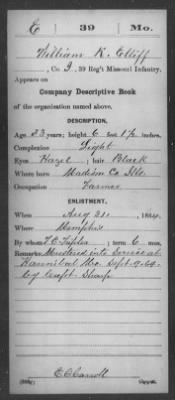 E 39 Mo.
William K. Elliff
, Co. I, 39 Reg't Missouri Infantry.
Appears on
Company Descriptive Book
of the organization named above.
DESCRIPTION.
Age 23 years; height 6 feet 1½ inches.
Complexion Light
Eyes Hazel; hair Black
Where born Madison Co Ills.
Occupation Farmer
ENLISTMENT.
When Aug 21, 1864.
Where Memphis
By whom; term 6 mos.
Remarks: Mustered into Service at
Hannibal Mo. Sept. 9-64.
by Capt. Sharp
E C Carroll
Copyist.